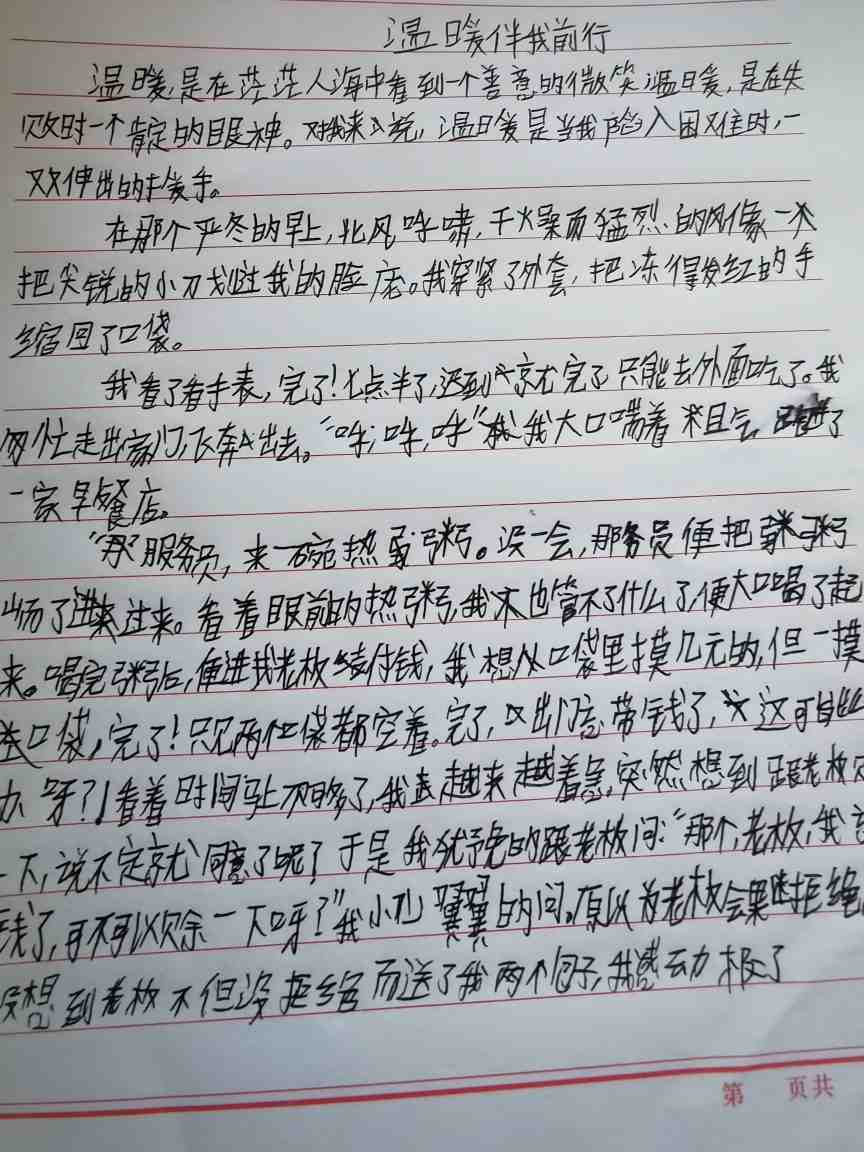 温暖伴我前行
温暖,是在茫茫人海中看到一个善意的微笑,温暖,是在失
败时一个肯定的眼神。对我来说,温暖是当我陷入困难时,一
双伸出的援手。
在那个严冬的早上,北风呼啸,干燥而猛烈的风像一
把尖锐的小刀划过我的脸庞。我穿紧了外套,把冻得发红的手
缩回了口袋。
我看了看手表,完了!七点半了,迟到就完了只能去外面吃了。我
匆忙走出家门,飞奔出去。“呼,呼,呼”我大口喘着粗气,进了
一家早餐店。
“那服务员,来一碗热粥。没一会,那务员便把粥
端了过来。看着眼前的热粥,我也管不了什么了,便大口喝了起
来。喝完粥后,便进找老板结付钱,我想从口袋里摸几元的,但一摸
口袋,完了!只见两个口袋都空着。完了,出门忘带钱了,这可
办呀?!看着时间马上不够了,我越来越着急,突然想到跟老板
一下,说不定就同意了呢?于是我犹豫的跟老板问:“那个,老板,我
钱了,可不可以赊一下呀?”我小心翼翼的问。原以为老板会果断拒绝,
没想到老板不但没拒绝而送了我两个包子,我感动极了
第 页共